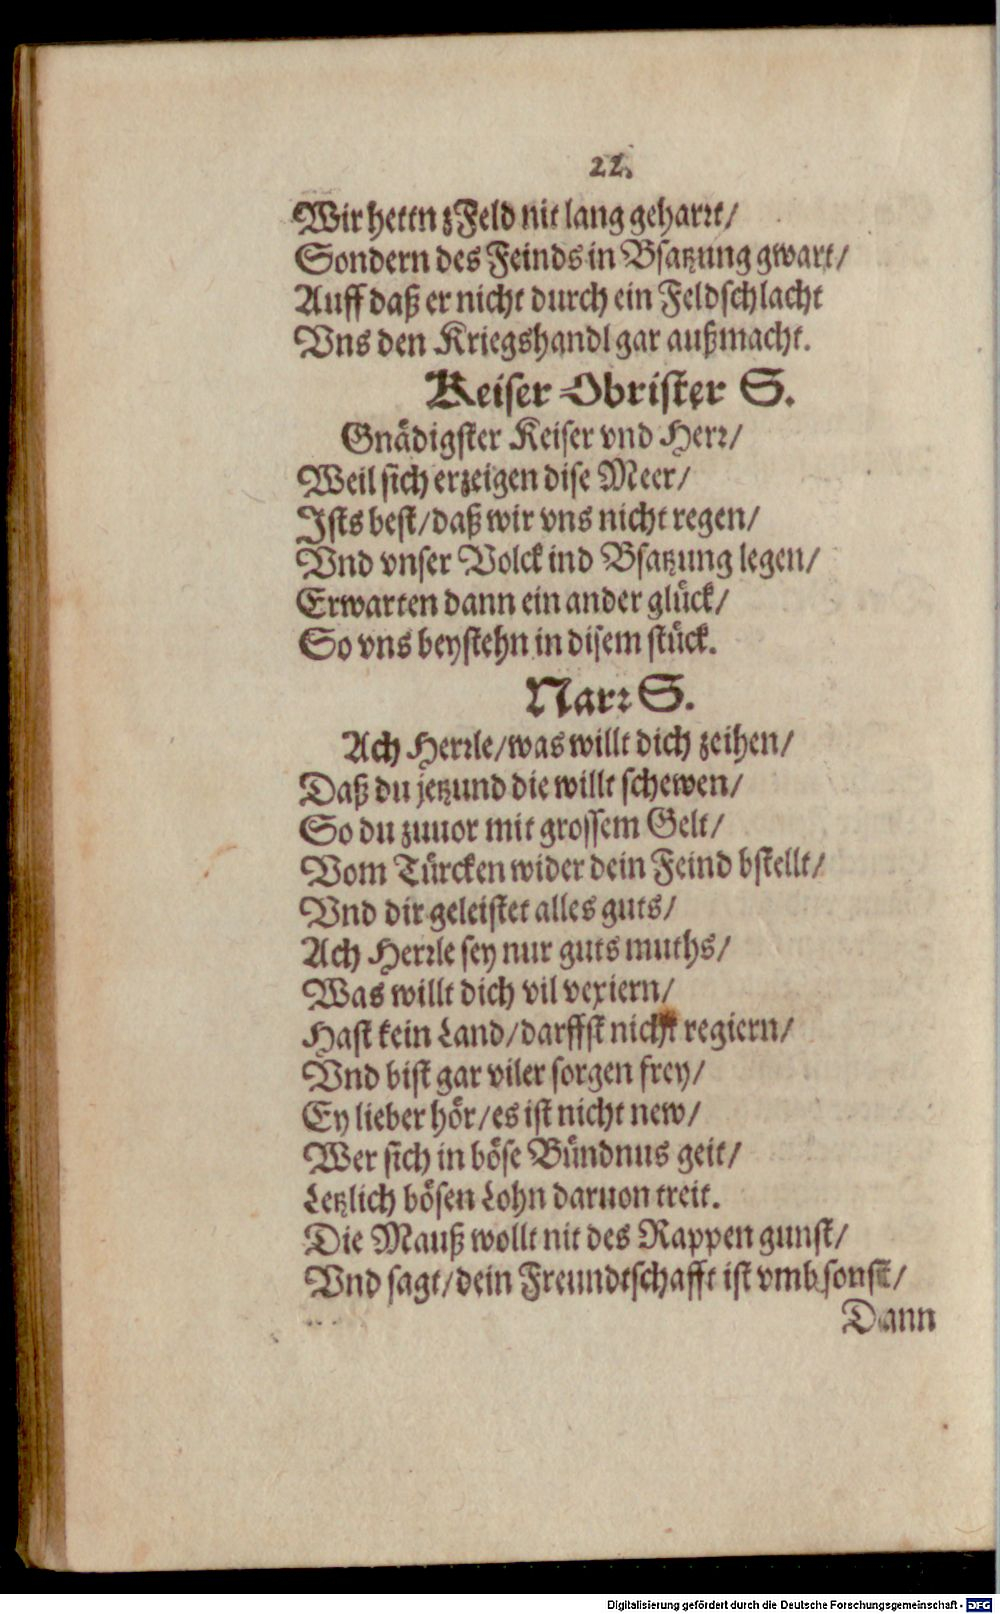 22.
Wir hettn zFeld nit lang geharꝛt/
Sondern des Feinds in Bsatzung gwart/
Auff daß er nicht durch ein Feldschlacht
Vns den Kriegshandl gar außmacht.
Keiser Obrister S.
Gnädigster Keiser vnd Herꝛ/
Weil sich erzeigen dise Meer/
Ists best/daß wir vns nicht regen/
Vnd vnser Volck ind Bsatzung legen/
Erwarten dann ein ander glück/
So vns beystehn in disem stück.
Narꝛ S.
Ach Herꝛle/was willt dich zeihen/
Daß du jetzund die willt schewen/
So du zuuor mit grossem Gelt/
Vom Türcken wider dein Feind bstellt/
Vnd dir geleistet alles guts/
Ach Herꝛle sey nur guts muths/
Was willt dich vil vexiern/
Hast kein Land/darffst nicht regiern/
Vnd bist gar viler sorgen frey/
Ey lieber hör/es ist nicht new/
Wer sich in böse Bündnus geit/
Letzlich bösen Lohn daruon treit.
Die Mauß wollt nit des Rappen gunst/
Vnd sagt/dein Freundtschafft ist vmb sonst/
Dann
Digitalisierung gefördert durch die Deutsche Forschungsgemeinschaft - DFG